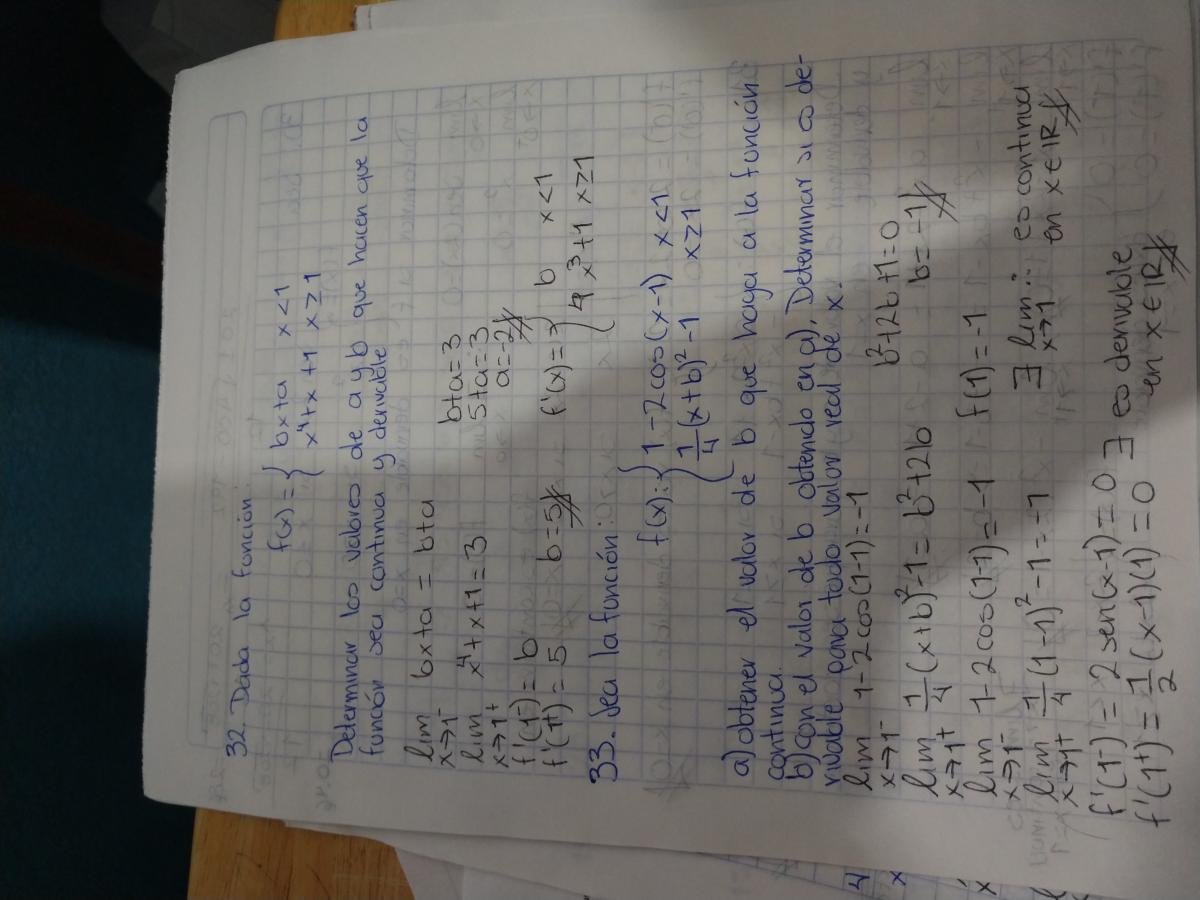 32. Dada la función:
f(x) = { bx+a x<1
x⁴+x+1 x≥1
Determinar los valores de a y b que hacen que la
función sea continua y derivable
lim x→1⁻ bx+a = b+a b+a=3
lim x→1⁺ x⁴+x+1=3 5+a=3
a=-2
f'(1⁻)=b
f'(1⁺)=5 b=5 f'(x)= { b x<1
4x³+1 x≥1
33. Sea la función:
f(x): { 1-2cos(x-1) x<1
1/4(x+b)²-1 x≥1
a) obtener el valor de b que haga a la función
continua.
b) con el valor de b obtenido en a), Determinar si es de-
rivable para todo valor real de x.
lim x→1⁻ 1-2cos(1-1)=-1
lim x→1⁺ 1/4(x+b)²-1=b²+2b b²+2b+1=0 b=-1
lim x→1⁻ 1-2cos(1-1)=-1 f(1)=-1
lim x→1⁺ 1/4(1-1)²-1=-1 ∃ lim x→1 ∴ es continua
en x∈ℝ
f'(1⁻)=2sen(x-1)=0 ∃ es derivable
f'(1⁺)=1/2(x-1)(1)=0 en x∈ℝ